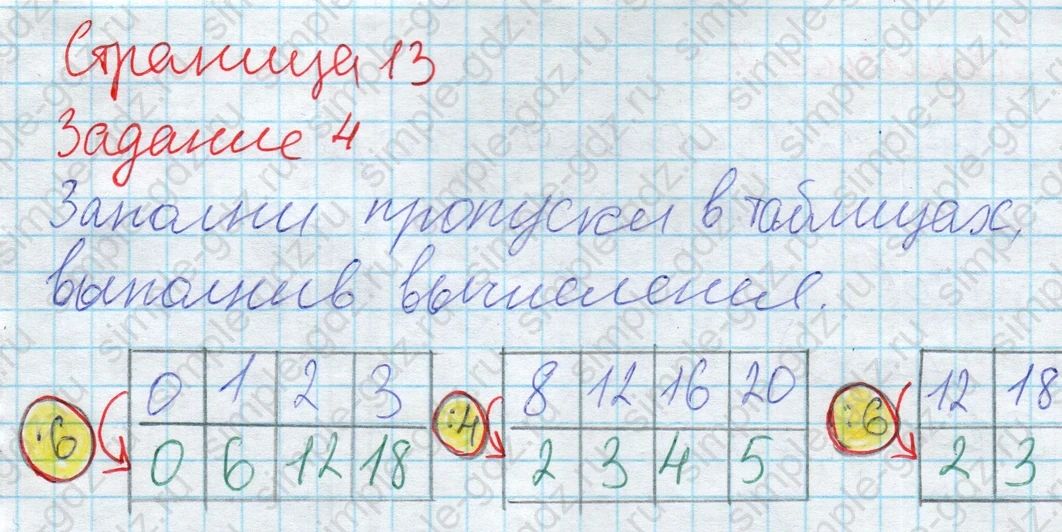 Страница 13
Задание 4
Заполни пропуски в таблицах,
выполнив вычисления.
·6 0 1 2 3 :4 8 12 16 20 :6 12 18
0 6 12 18 2 3 4 5 2 3
simple-gdz.ru